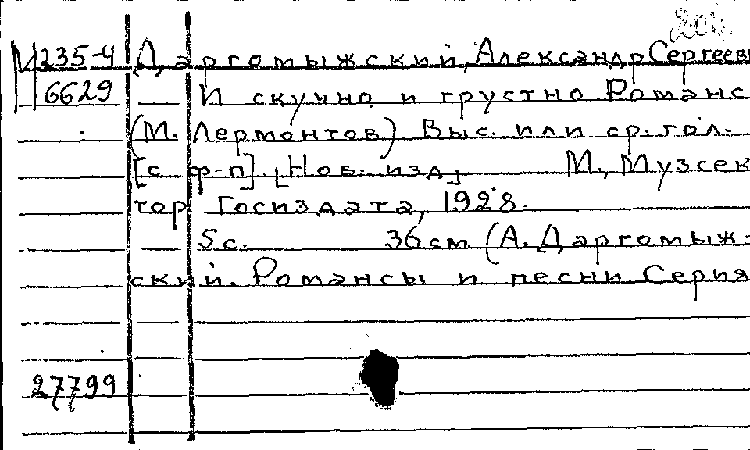 М 235-4 Даргомыжский, Александр Сергеев
6629 И скучно и грустно Романс
(М. Лермонтов) Выс. или ср. гол.
[с ф-п]. [Нов. изд] М., Музсек
тор Госиздата, 1928.
5с. 36см (А. Даргомыж-
ский. Романсы и песни Серия
27799